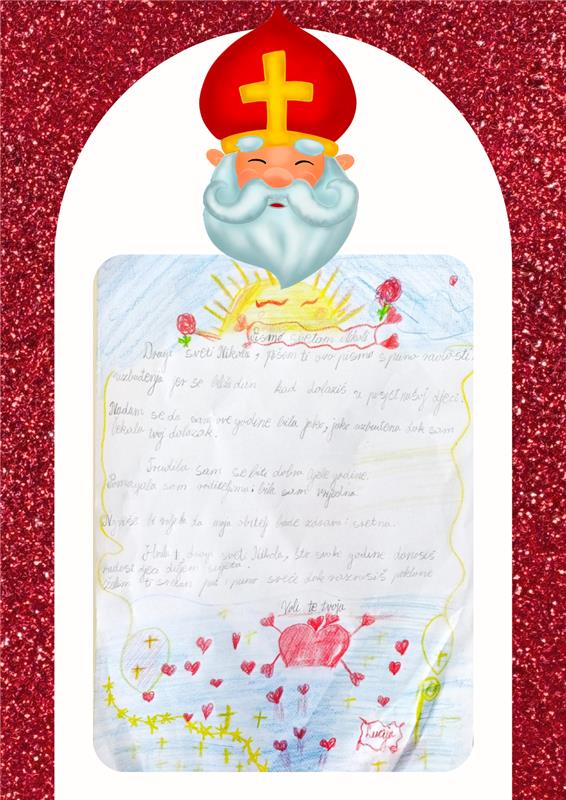 Pismo svetom Nikoli
Dragi sveti Nikola, pišem ti ovo pismo s puno radosti i
uzbuđenja jer se bliži dan kad dolaziš u posjet našoj djeci.
Nadam se da sam ove godine bila jako, jako uzbuđena dok sam
čekala tvoj dolazak.
Trudila sam se biti dobra cijele godine.
Pomagala sam roditeljima i bila sam vrijedna.
Najviše bi voljela da moja obitelj bude zdrava i sretna.
Hvala ti, dragi sveti Nikola, što svake godine donosiš
radost djeci diljem svijeta.
Želim ti sretan put i puno sreće dok raznosiš poklone
Voli te tvoja
Lucija